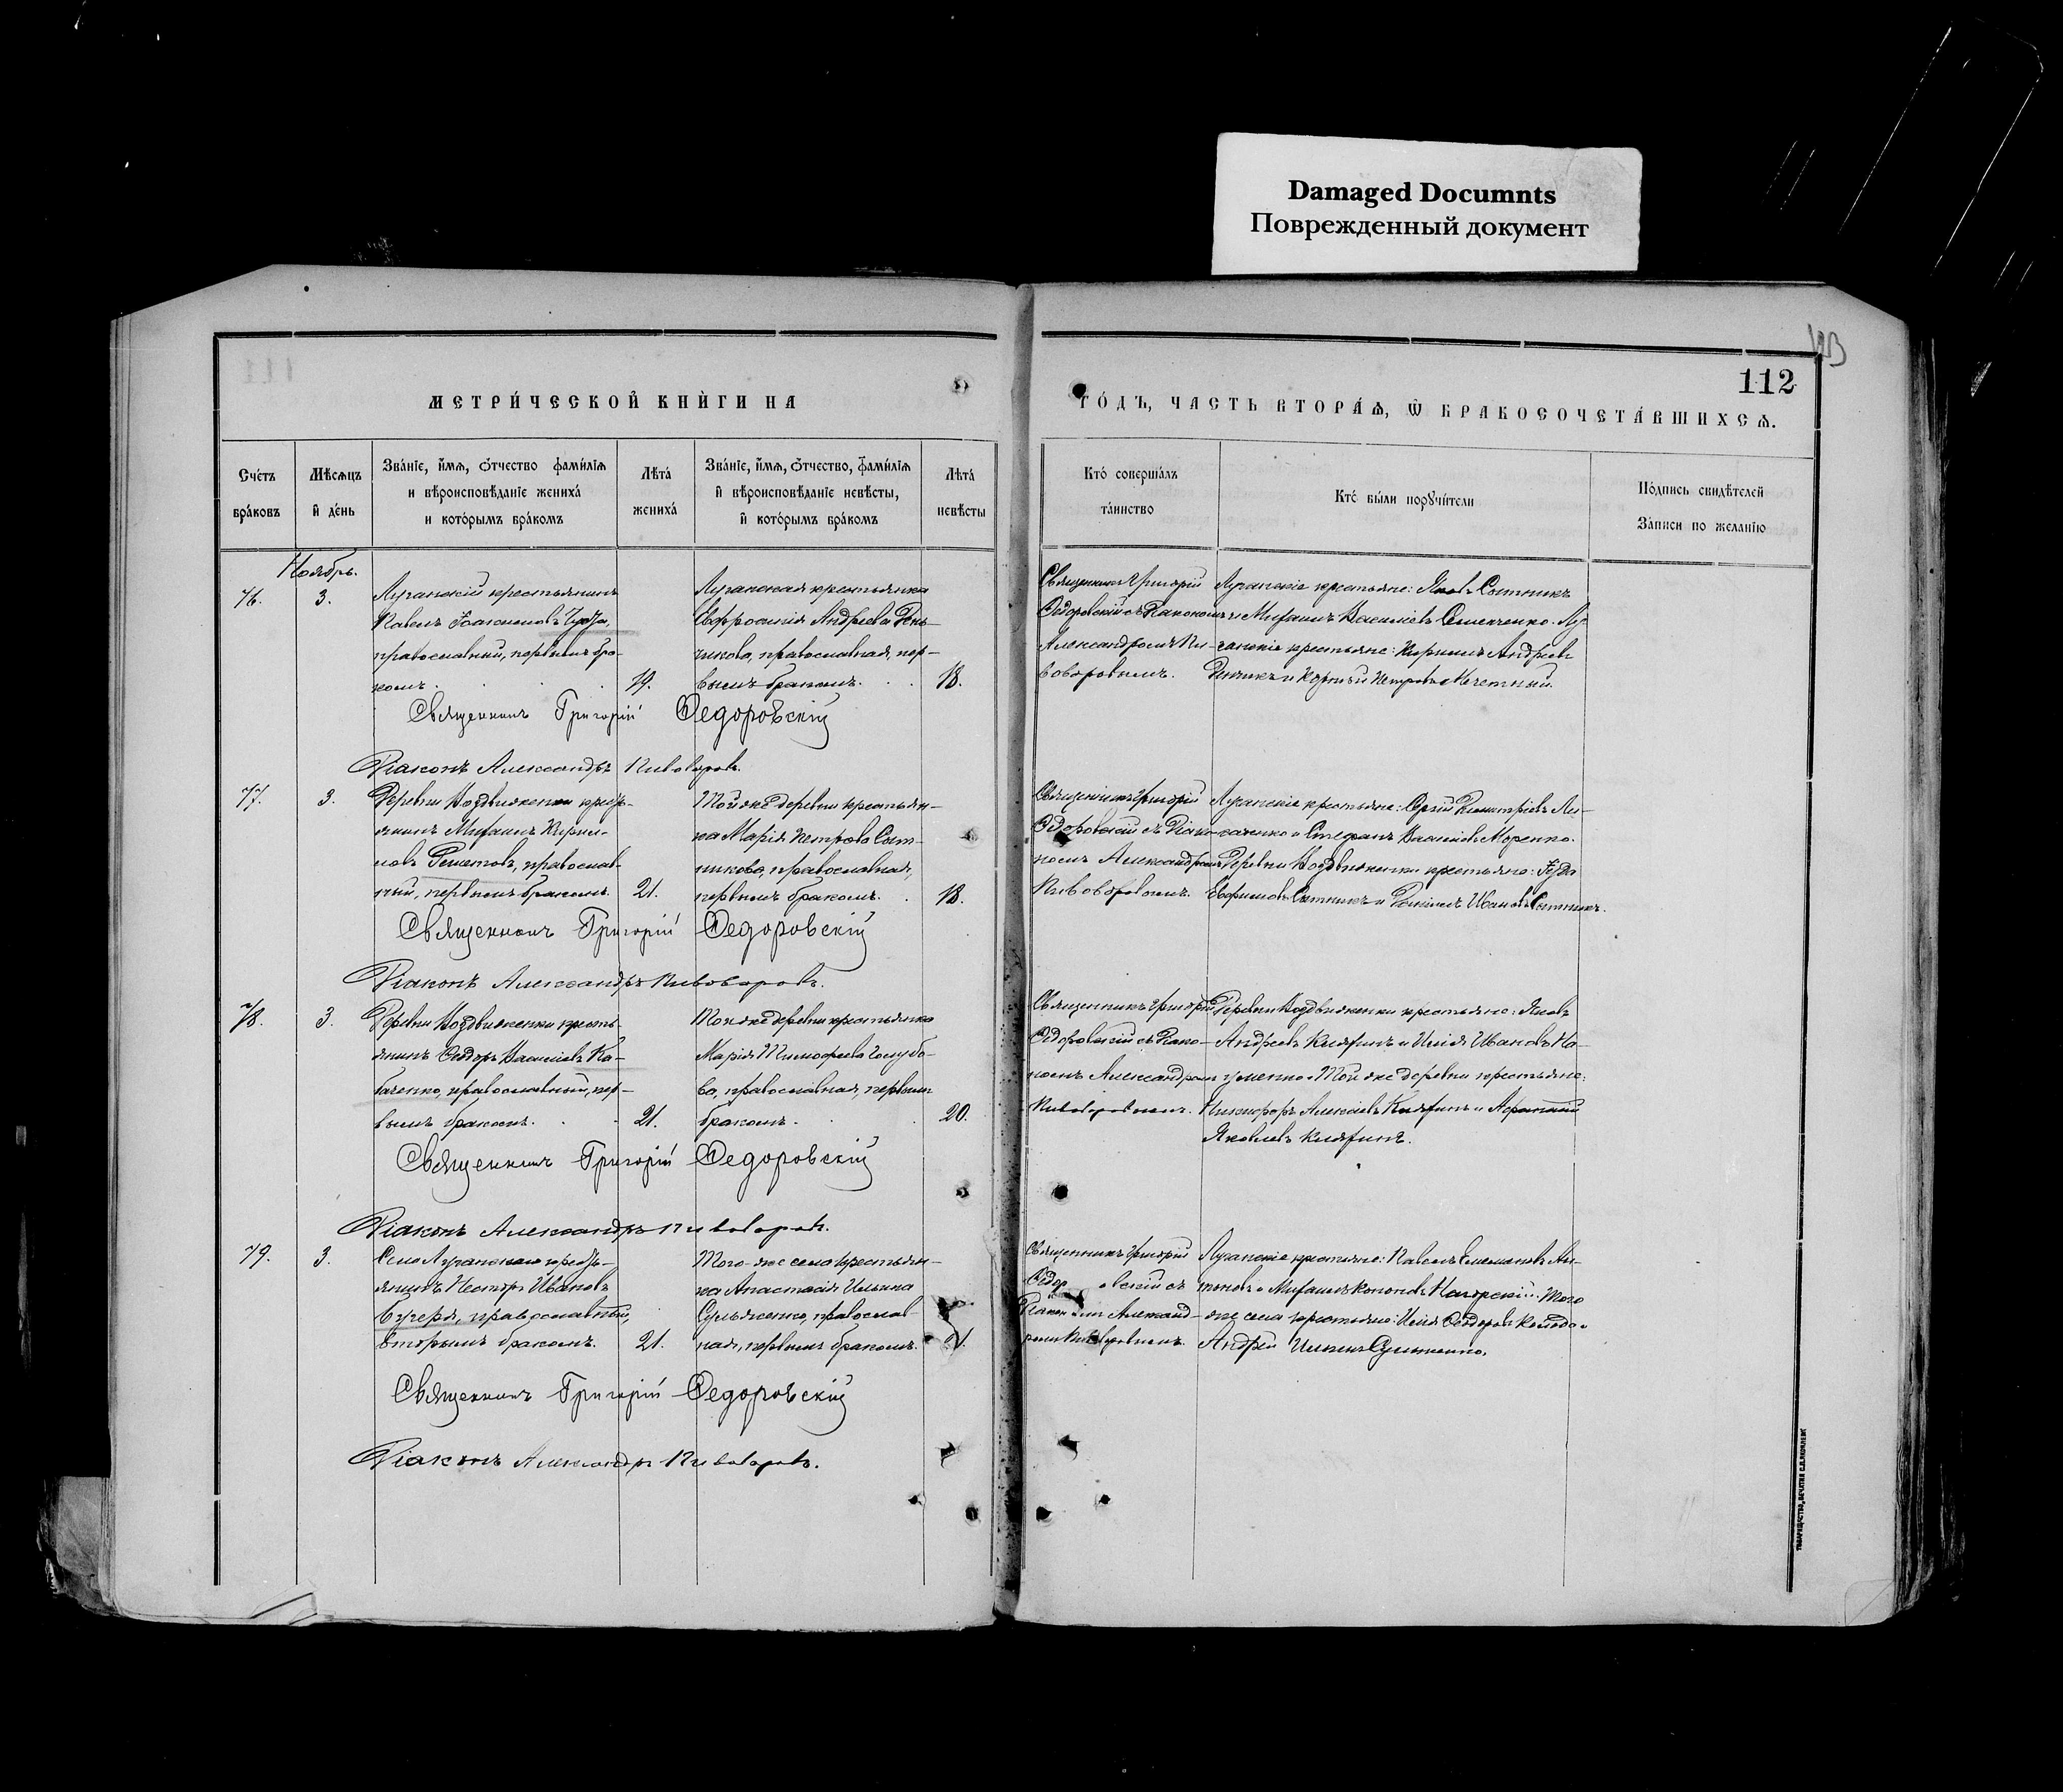 Damaged Documnts
Поврежденный документ
112
МЕТРИ́ЧЕСКОЙ КНИ́ГИ НА
ГО́ДЪ, ЧАСТЬ ВТОРА́Ѧ, Ѿ БРАКОСОЧЕТА́ВШИХСѦ.
Сче́тъ бра́ковъ
Мѣ́сѧцъ и҆ де́нь
Зва́нїе, и҆́мѧ, ѻ҆́тчество фами́лїѧ и вѣроисповѣ́данїе жениха́ и кото́рымъ бра́комъ
Лѣ́та жениха́
Зва́нїе, и҆́мѧ, ѻ҆́тчество, фами́лїѧ и҆ вѣроисповѣ́данїе невѣ́сты, и҆ кото́рымъ бра́комъ
Лѣ́та невѣ́сты
Кто́ соверша́лъ та́инство
Кто́ бы́ли порꙋчи́тели
По́дпись свидѣ́телей За́писи по жела́нїю
Ноябрь.
76.
3.
Луганскій крестьянинъ
православный, первымъ бра-
комъ.
19.
Луганская крестьянка
Евфросинія Андреева
православная, пер-
вымъ бракомъ.
18.
Священникъ Григорій
Федоровскій съ Діакономъ
Александромъ Пи-
воваровымъ.
Луганскіе крестьяне: Яковъ Сытникъ
и Михаилъ Василіевъ Семенченко. Лу-
ганскіе крестьяне: Кириллъ Андреевъ
Священникъ Григорій Федоровскій
Діаконъ Александръ Пивоваровъ.
77.
3.
Деревни Воздвиженки кресть-
янинъ Михаилъ Кирил-
ловъ Решетовъ, православ-
ный, первымъ бракомъ.
21.
Той же деревни крестьян-
ка Марія Петрова Сыт-
никова, православная,
первымъ бракомъ.
18.
Священникъ Григорій
Федоровскій съ Діако-
номъ Александромъ
Пивоваровымъ.
Луганскіе крестьяне: Сергій Димитріевъ Ли-
саченко и Стефанъ Василіевъ Моренко.
Деревни Воздвиженки крестьяне:
Евфимовъ Сытникъ и Даніилъ Ивановъ Сытникъ.
Священникъ Григорій Федоровскій
Діаконъ Александръ Пивоваровъ.
78.
3.
Деревни Воздвиженки кресть-
янинъ Ѳеодоръ Василіевъ Ка-
баченко, православный, пер-
вымъ бракомъ.
21.
Той же деревни крестьянка
Марія Тимофеева Голубо-
ва, православная, первымъ
бракомъ.
20.
Священникъ Григорій
Федоровскій съ Діако-
номъ Александромъ
Пивоваровымъ.
Деревни Воздвиженки крестьяне: Яковъ
Андреевъ Княгинъ и Илія Ивановъ На-
уменко. Той же деревни крестьяне:
Никифоръ Алексіевъ Княгинъ и Афанасій
Яковлевъ Княгинъ.
Священникъ Григорій Федоровскій
Діаконъ Александръ Пивоваровъ.
79.
3.
Села Луганскаго кресть-
янинъ Несторъ Ивановъ
православный,
вторымъ бракомъ.
21.
Того-же села крестьян-
ка Анастасія Ильина
православ-
ная, первымъ бракомъ.
21.
Священникъ Григорій
съ
Луганскіе крестьяне: Павелъ Емеліановъ Ан-
тоновъ и Михаилъ Кононовъ Нагорскій. Того
же села крестьяне: Илія Ѳеодоровъ
Андрей Ильинъ
Священникъ Григорій Федоровскій
Діаконъ Александръ Пивоваровъ.